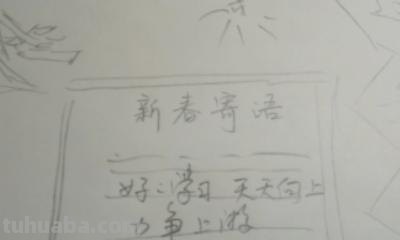 新春寄语
好:学习 天天向上
力争上游
tuhuaba.com